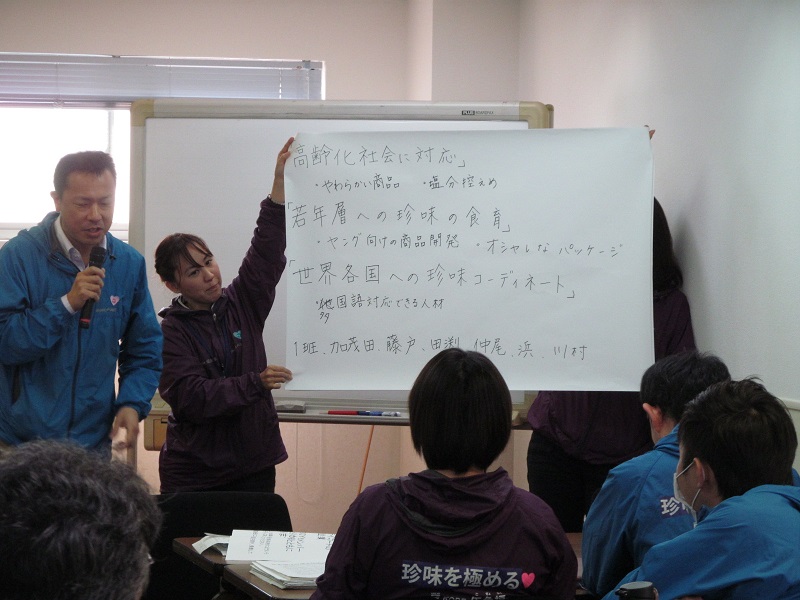 PLUS
高齢化社会に対応」
・やわらかい商品 ・塩分控えめ
「若年層への珍味の食育」
・ヤング向けの商品開発 ・オシャレな パッケージ
「世界各国への珍味コーディネート」
・他国語対応できる人材
多
1班、加茂田、藤戸、田渕、仲尾、浜、川村
珍味を極める♥
珍味